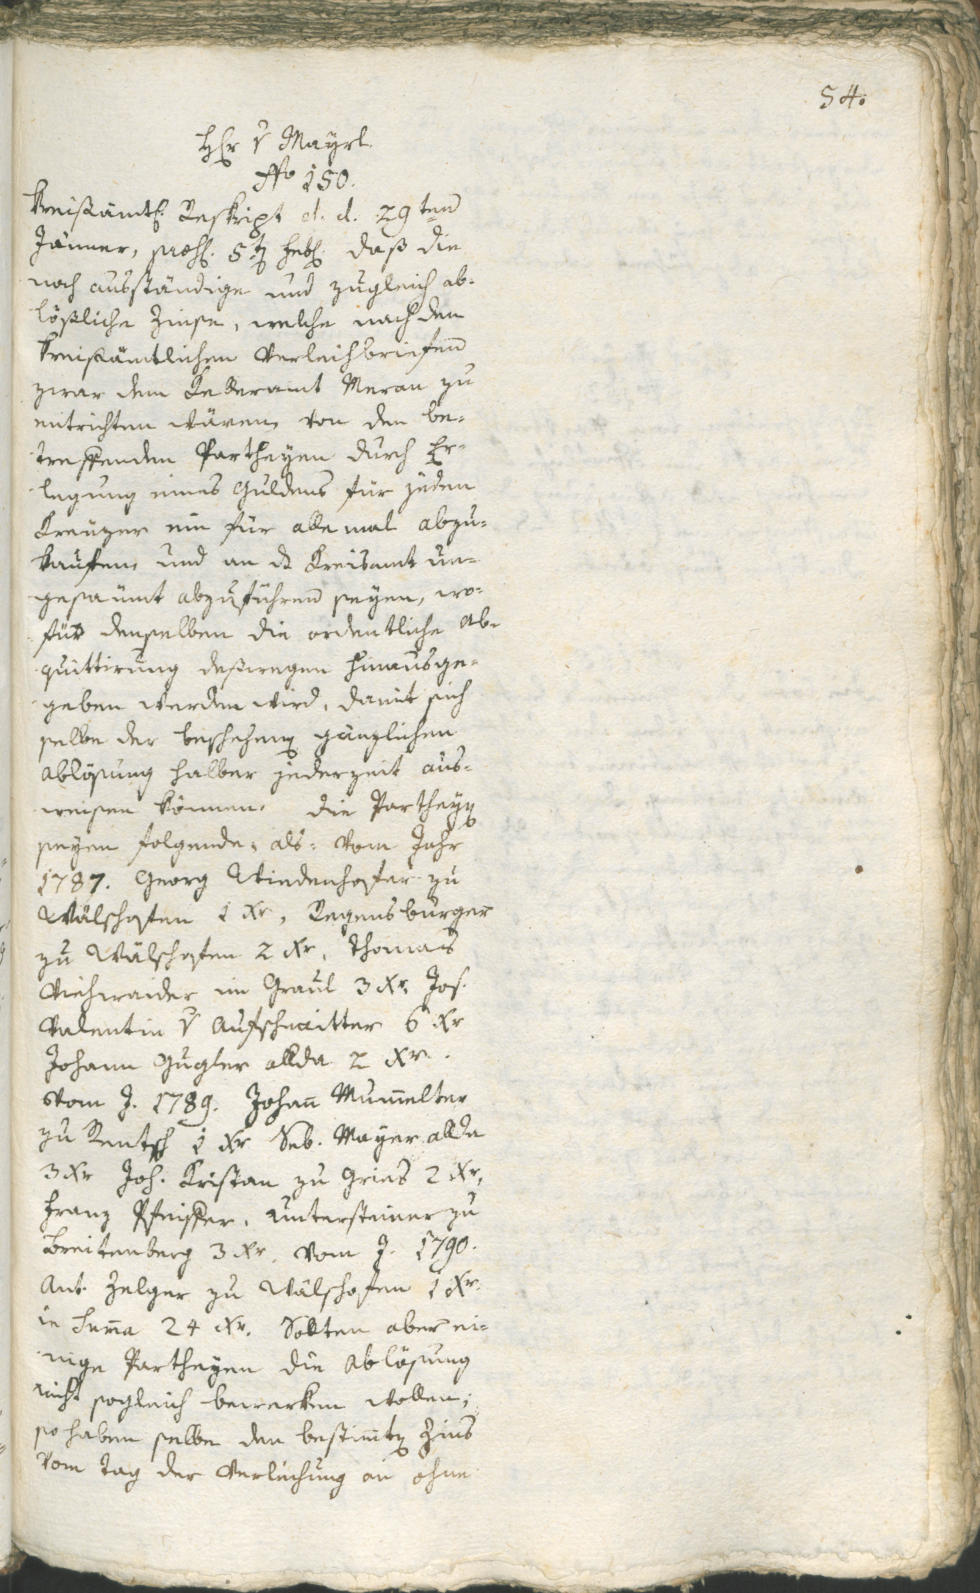 54.
Hr v Mayrl.
No 150.
Kreisämtl. Reskript d. d. 29ten
Jänner, præs. 5t Feb. daß die
noch ausständige und zugleich ab-
lößliche Zinse, welche nach den
kreisämtlichen Verleichbriefen
zwar dem Kelleramt Meran zu
entrichten wären, von den be-
treffenden Partheyen durch Er-
legung eines Guldens für jeden
Kreuzer ein für allemal abzu-
kaufen, und an dz Kreisamt un-
gesaumt abzuführen seyen, wo-
für denselben die ordentliche Ab-
quittirung deßwegen hinausge-
geben werden wird, damit sich
selbe der beschehenen gänzlichen
Ablösung halber jederzeit aus-
weisen können. Die Partheyen
seyen folgende, als: vom Jahr
1787. Georg Windenhofer zu
Wälschofen 1 Xr, Regensburger
zu Wälschofen 2 Xr, Thomas
Viehwaider im Graul 3 Xr Jos.
Valentin v Aufschnaitter 6 Xr
Johann Gugler allda 2 Xr.
vom J. 1789. Johann Mumelter
zu Rentsch 1 Xr Seb. Mayer allda
3 Xr Joh. Kristan zu Gries 2 Xr,
Franz Pfeiffer, Untersteiner zu
Breitenberg 3 Xr. vom J. 1790.
Ant. Zelger zu Wälschofen 1 Xr.
in Suma 24 Xr. Sollten aber ei-
nige Partheyen die Ablösung
nicht sogleich bewerken wollen;
so haben selbe den bestimten Zins
vom Tag der Verleichung an ohne